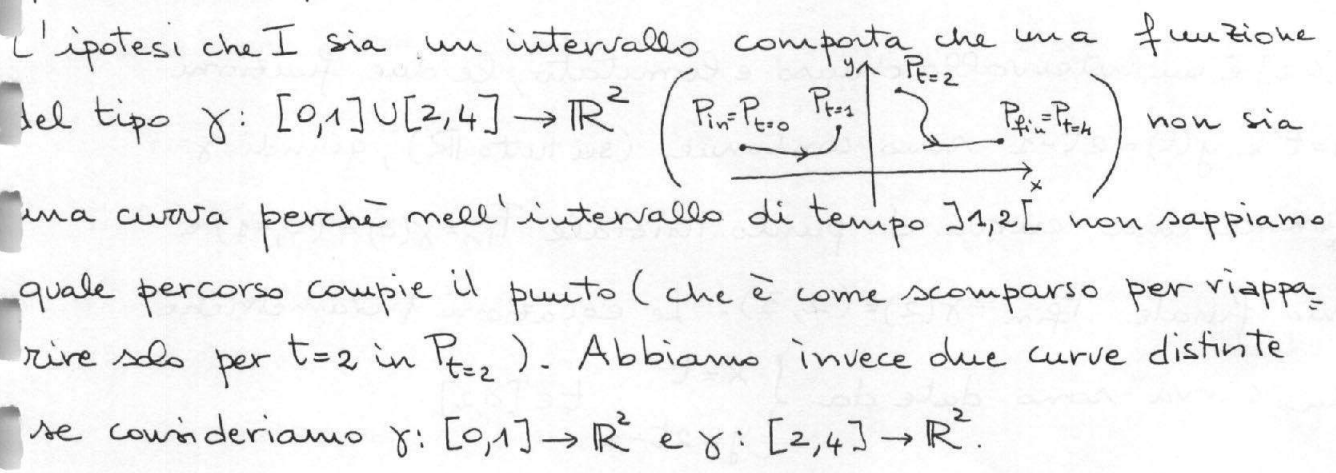 L'ipotesi che I sia un intervallo comporta che una funzione
del tipo γ: [0,1]∪[2,4] → ℝ² ( P_in=P_t=0 P_t=1 y P_t=2 P_fin=P_t=4 x ) non sia
una curva perchè nell'intervallo di tempo ]1,2[ non sappiamo
quale percorso compie il punto (che è come scomparso per riappa=
rire solo per t=2 in P_t=2). Abbiamo invece due curve distinte
se consideriamo γ: [0,1] → ℝ² e γ: [2,4] → ℝ².